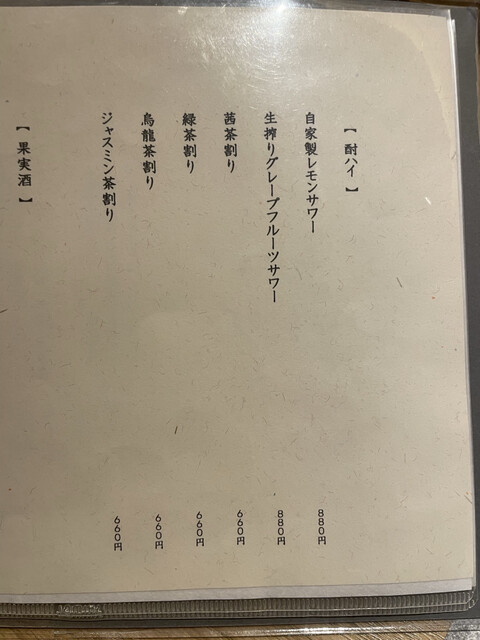 【 酎ハイ 】
自家製レモンサワー 880円
生搾りグレープフルーツサワー 880円
茜茶割り 660円
緑茶割り 660円
烏龍茶割り 660円
ジャスミン茶割り 660円
【 果実酒 】